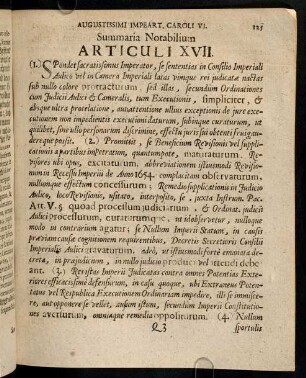 AUGUSTISSIMI IMPEART. CAROLI VI. 125
Summaria Notabilium
ARTICULI XVII.
(1.) SPondet sacratissimus Imperator, se sententias in Consilio Imperiali
Aulico vel in Camera Imperiali latas vimque rei judicatæ nactas
sub nullo colore protracturum, sed illas, secundum Ordinationes
cum Judicii Aulici & Cameralis, tum Executionis, simpliciter, &
absque ultra protelatione, aut attentione ullius exceptionis in jure exec-
utionem non impedientis executioni daturum, subinque curaturum, ut
quilibet, sine ullo personarum discrimine, effectu juris sui obtenti frui &
dere possit. (2.) Promittit, se Beneficium Revisionis vel supplic-
antis partibus impetratum, quantumpote, maturaturum. Re-
visores ubi opus, excitaturum, abbreviationem istiusmodi Revisio-
num in Recessu Imperii de Anno 1654. complacitam observaturum,
nullumque effectum concessurum; Remedio supplicationis in Judicio
Aulico, loco Revisionis, usitato, interposito, se, juxta Instrum. Pac.
Art. V. § quoad processum judiciarium. & Ordinat. judicii
Aulici processurum, curaturumque, ut id observetur, nulloque
modo in contrarium agatur; se Nullum Imperii Statum, in causis
præviam causæ cognitionem requirentibus, Decretis Secretioris Consilii
Imperialis Aulici gravaturum, adeo, ut istiusmodi forte emanata de-
creta, in præjudicium, in nullo judicio produci vel attendi debe-
ant. (3.) Revisurum Imperii Judicatas contra omnes Potentias Exte-
riores efficacissime defensurum, in casu quoque, ubi Extraneus Poten-
tatus vel Respublica Executionem Ordinariam impedire, illi se immisce-
re, aut opponere se vellet, ausum istum, secundum Imperii Constitutio-
nes aversurum, omniaque remedia oppositurum. (4. Nullum
Q 3 sportulis